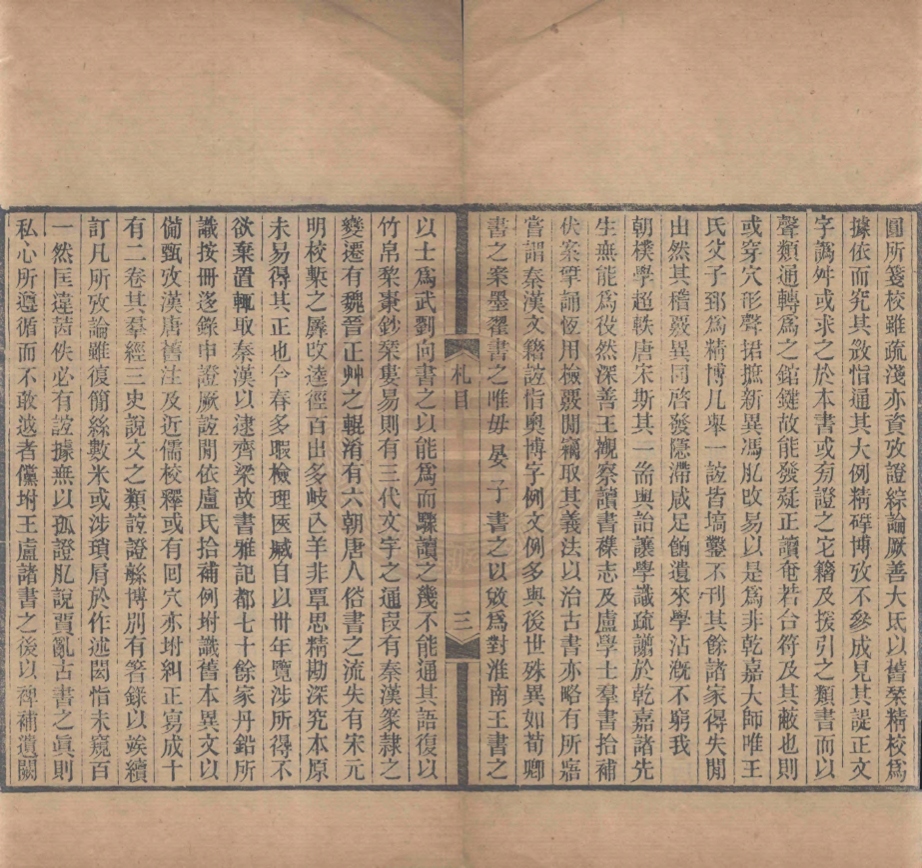 圓所箋校雖疏淺亦資攷證綜論厥善大氐以舊槧精校爲
據依而究其㣲恉通其大例精䂽博攷不參成見其諟正文
字譌舛或求之於本書或㫄證之它籍及援引之類書而以
聲類通轉爲之錧鍵故能發疑正讀奄若合符及其蔽也則
或穿穴形聲捃摭新異馮肊改易以是爲非乾嘉大師唯王
氏父子郅爲精博凡舉一誼皆塙鑿不刊其餘諸家得失閒
出然其稽覈異同啓發隱滯咸足餉遺來學沾溉不窮我
朝樸學超軼唐宋斯其一耑與詒讓學識疏譾於乾嘉諸先
生無能爲役然深善王觀察讀書襍志及盧學士羣書拾補
伏案孶誦恆用檢覈閒竊取其義法以治古書亦略有所寤
嘗謂秦漢文籍誼恉奥博字例文例多與後世殊異如荀卿
書之案墨翟書之唯毋晏子書之以敓爲對淮南王書之
札目
三
以士爲武劉向書之以能爲而驟讀之幾不能通其語復以
竹帛棃棗鈔槧婁易則有三代文字之通叚有秦漢篆隷之
變遷有魏晉正艸之輥淆有六朝唐人俗書之流失有宋元
明校槧之羼改逵徑百出多岐亾羊非覃思精勘深究本原
未易得其正也今春多暇檢理匧臧自以卅年覽涉所得不
欲棄置輒取秦漢以逮齊梁故書雅記都七十餘家丹鉛所
識按冊迻錄申證厥誼閒依盧氏拾補例坿識舊本異文以
備甄攷漢唐舊注及近儒校釋或有回穴亦坿糾正寫成十
有二卷其羣經三史說文之類誼證緐博別有箸錄以竢續
訂凡所攷論雖復簡絲數米或涉瑣屑於作述閎恉未窺百
一然匡違茜佚必有誼據無以孤證肊說賈亂古書之眞則
私心所遵循而不敢越者儻坿王盧諸書之後以稗補遺闕